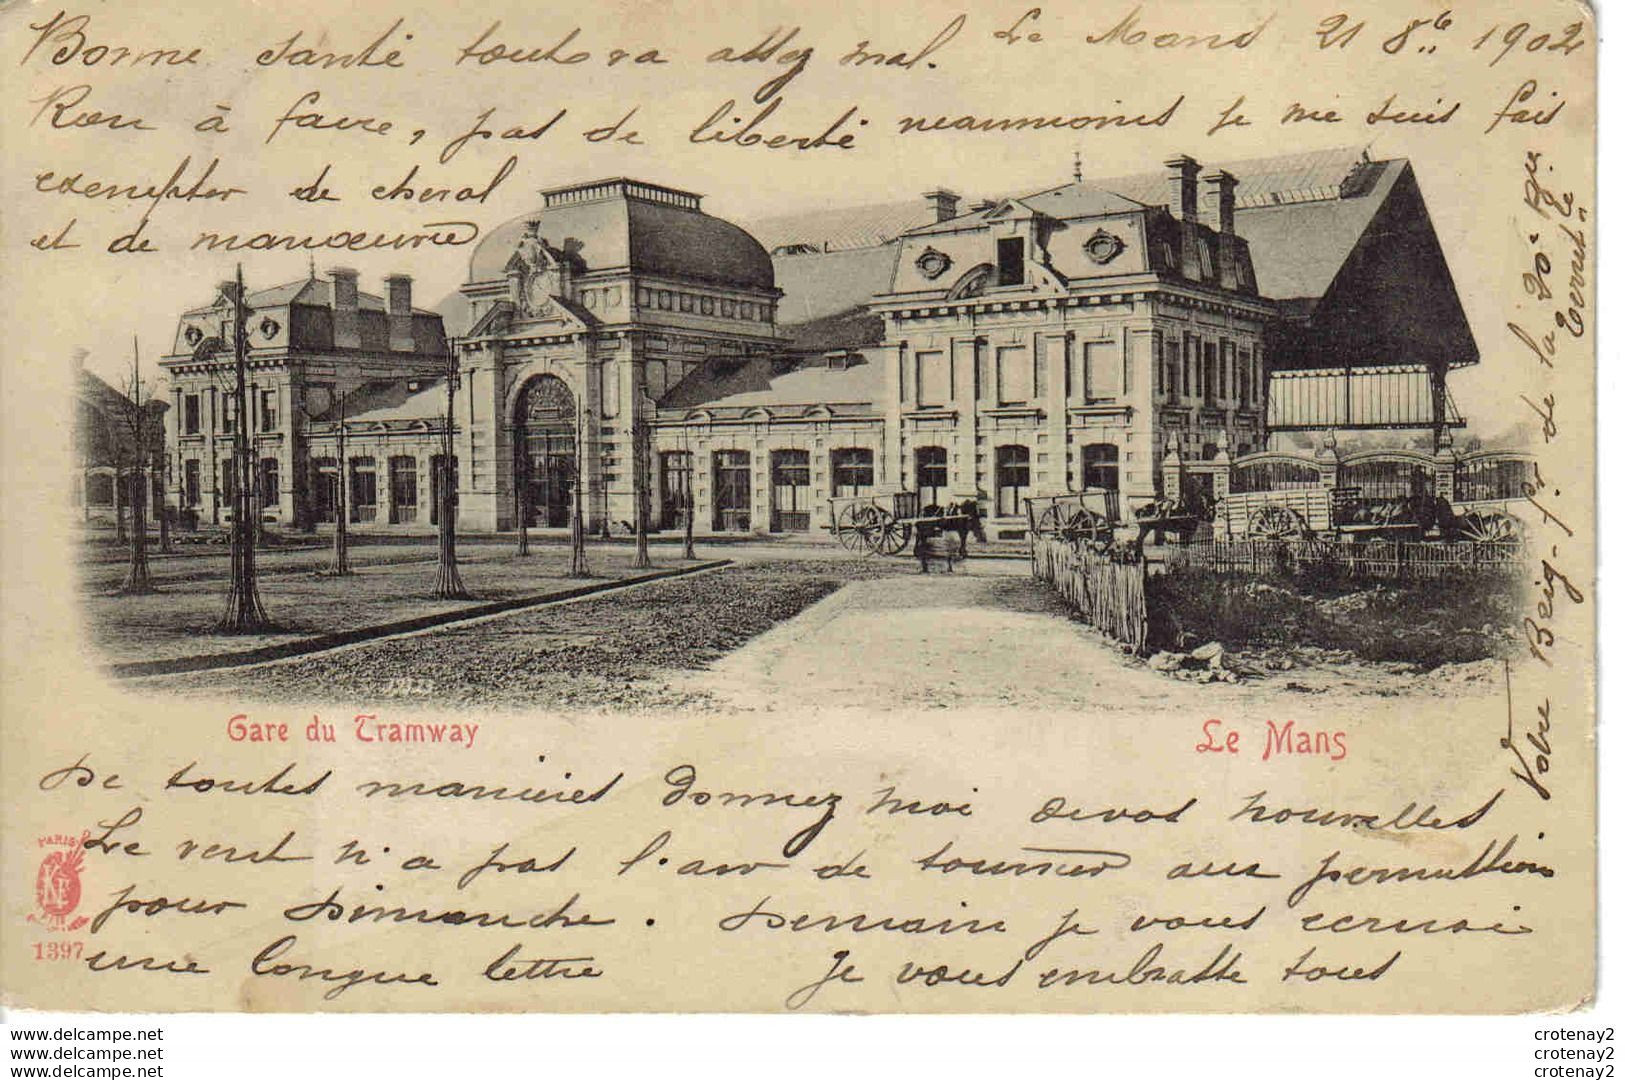 Le Mans 21 8bre 1902
Bonne santé tout va assez mal.
Rien à faire, pas de liberté neanmoins je me suis fais
exempter de cheval
et de manœuvre
Gare du Tramway
Le Mans
De toutes manieres donnez moi de vos nouvelles
Le vent n'a pas l'air de tourner aux permissions
pour Dimanche. Demain je vous ecrirai
une longue lettre Je vous embrasse tous
Votre Brig- de la
PARIS
KF
1397
delcampe.net
delcampe.net
delcampe.net
crotenay2
crotenay2
crotenay2